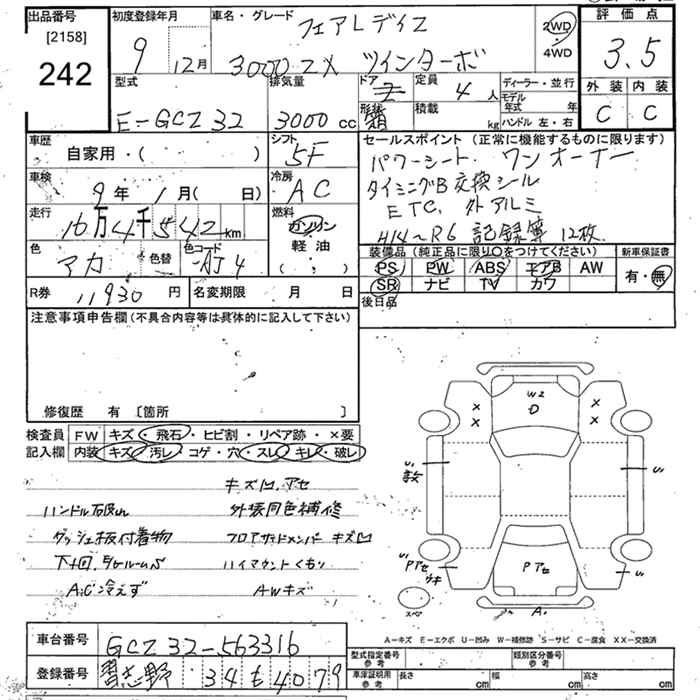 出品番号 初度登録年月 車名・グレード 評価点
[2158] フェアレディZ 2WD 3.5
242 9 12月 3000ZX ツインターボ ・4WD
型式 排気量 ドア 定員 4人 ディーラー・並行 外装 内装
E-GCZ32 3000cc 形状 積載 kg モデル年式 年 C C
ハンドル 左・右
車歴 シフト セールスポイント (正常に機能するものに限ります)
自家用・( ) 5F パワーシート. ワンオーナー
車検 冷房 タイミングB交換シール
9年 1月(日) AC ETC. 外アルミ
走行 燃料 H14~R6 記録簿 12枚.
16万4千542km ガソリン
色 色替 色コード 軽油 装備品 (純正品に限り○をつけてください) 新車保証書
アカ AJ4 ( ) PS PW ABS エアB AW 有・無
R券 11930円 名変期限 月 日 SR ナビ TV カワ
後日品
注意事項申告欄(不具合内容等は具体的に記入して下さい)
修復歴 有 [箇所 ]
検査員 FW キズ・飛石・ヒビ割・リペア跡・×要
記入欄 内装 キズ・汚レ・コゲ・穴・スレ・キレ・破レ
キズ凹.アセ
外装同色補修
ダッシュ板付着物 フロアサイドメンバー キズ凹
ハイマウントくもり
A/C冷えず AWキズ
W2
D
× ×
× ×
U1 U1
Pアセ
ウキ
Pアセ
スペア A.
A-キズ E-エクボ U-凹み W-補修跡 S-サビ C-腐食 XX-交換済
車台番号 GCZ32-563316
型式指定番号 参考 類別区分番号 参考
登録番号 習志野 34 も 4079
車庫証明用 参考 長さ cm 幅 cm 高さ cm